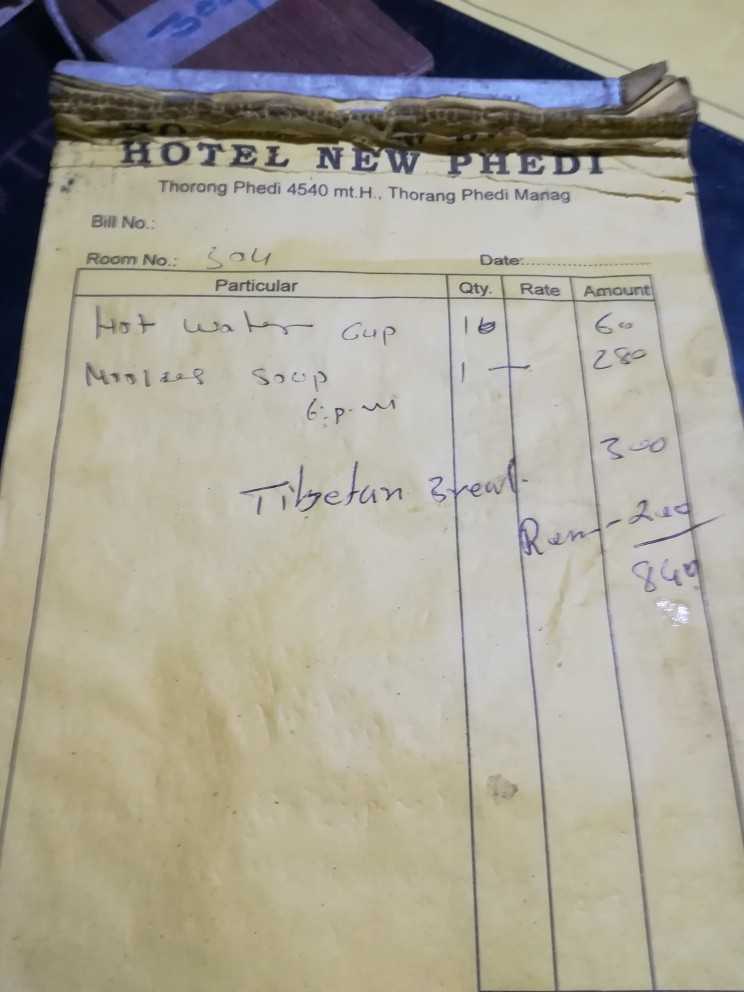 HOTEL NEW PHEDI
Thorong Phedi 4540 mt.H., Thorang Phedi Manag
Bill No.:
Room No.: 304 Date:
Particular Qty. Rate Amount
Hot water Cup 1 60
Soup 1 280
6:p.m
300
Tibetan Bread.
Room - 200
840